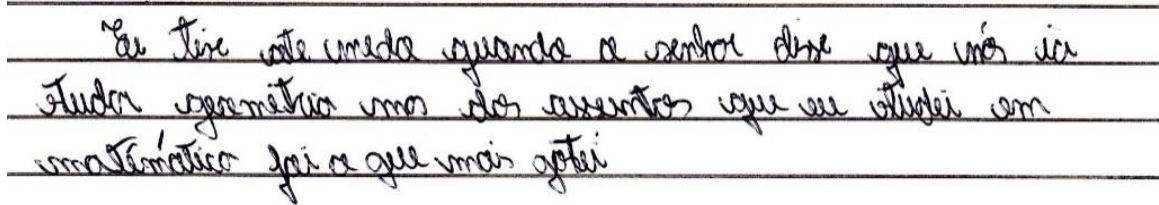 Eu tive ate medo quando o senhor disse que nós ia
etudar geometria mas dos assuntos que eu etudei em
matématica foi o que mais gotei